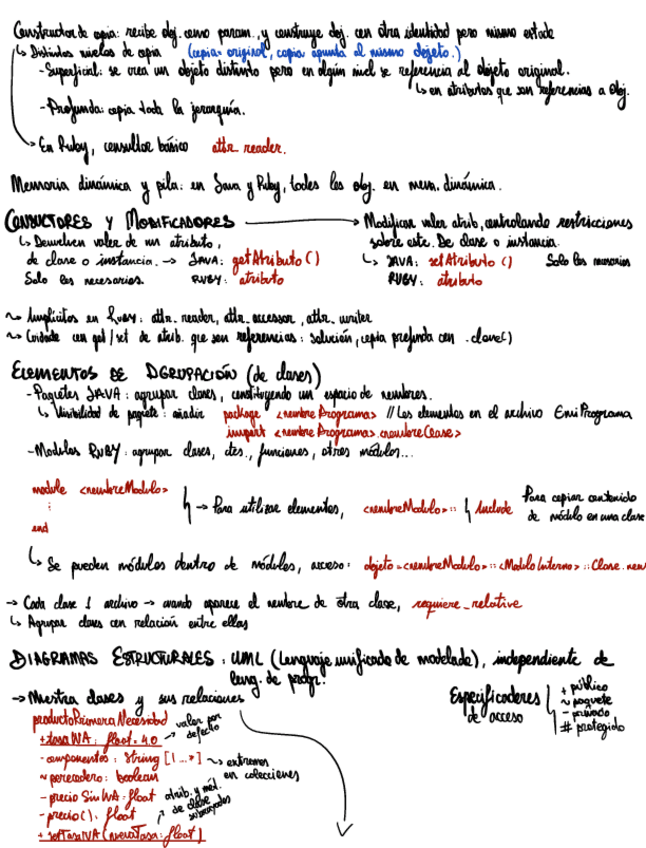 Constructor de copia: recibe obj. como param., y construye obj. con otra identidad pero mismo estado
↳ Distintos niveles de copia (copia = original, copia apunta al mismo objeto.)
- Superficial: se crea un objeto distinto pero en algún nivel se referencia al objeto original.
↳ en atributos que son referencias a obj.
- Profunda: copia toda la jerarquía.
↳ En Ruby, consultor básico attr_reader.
Memoria dinámica y pila: en Java y Ruby, todos los obj. en mem. dinámica.
CONSULTORES Y MODIFICADORES → Modifican valor atrib, controlando restricciones
↳ Devuelven valor de un atributo, sobre este. De clase o instancia.
de clase o instancia. → JAVA: getAtributo () ↳ JAVA: setAtributo () Solo los necesarios
Solo los necesarios. RUBY: atributo RUBY: atributo
~> Implícitos en Ruby: attr_reader, attr_accessor, attr_writer
~> Cuidado con get / set de atrib. que son referencias: solución, copia profunda con .clone()
ELEMENTOS DE AGRUPACIÓN (de clases)
- Paquetes JAVA: agrupar clases, constituyendo un espacio de nombres.
↳ Visibilidad de paquete: añadir package <nombrePrograma> // Los elementos en el archivo EmiPrograma
import <nombrePrograma>.<nombreClase>
- Modulos RUBY: agrupan clases, ctes., funciones, otros módulos...
module <nombreModulo>
⋮ → Para utilizar elementos, <nombreModulo>:: Include Para copiar contenido
end de módulo en una clase
↳ Se pueden módulos dentro de módulos, acceso: objeto = <nombreModulo>::<ModuloInterno>::Clase.new
→ Cada clase 1 archivo → cuando aparece el nombre de otra clase, requiere_relative
↳ Agrupar clases con relación entre ellas
DIAGRAMAS ESTRUCTURALES: UML (Lenguaje unificado de modelado), independiente de
leng. de progr.
→ Muestra clases y sus relaciones Especificadores + público
de acceso ~ paquete
- privado
# protegido
productoPrimeraNecesidad
+ tasaIVA: float = 4.0 → valor por defecto
- componentes: String [1...*] ~> extremos
~ perecedero: boolean en colecciones
- precioSinIVA: float atrib. y mét.
- precio(): float de clase subrayados
+ setTasaIVA (nuevaTasa: float)